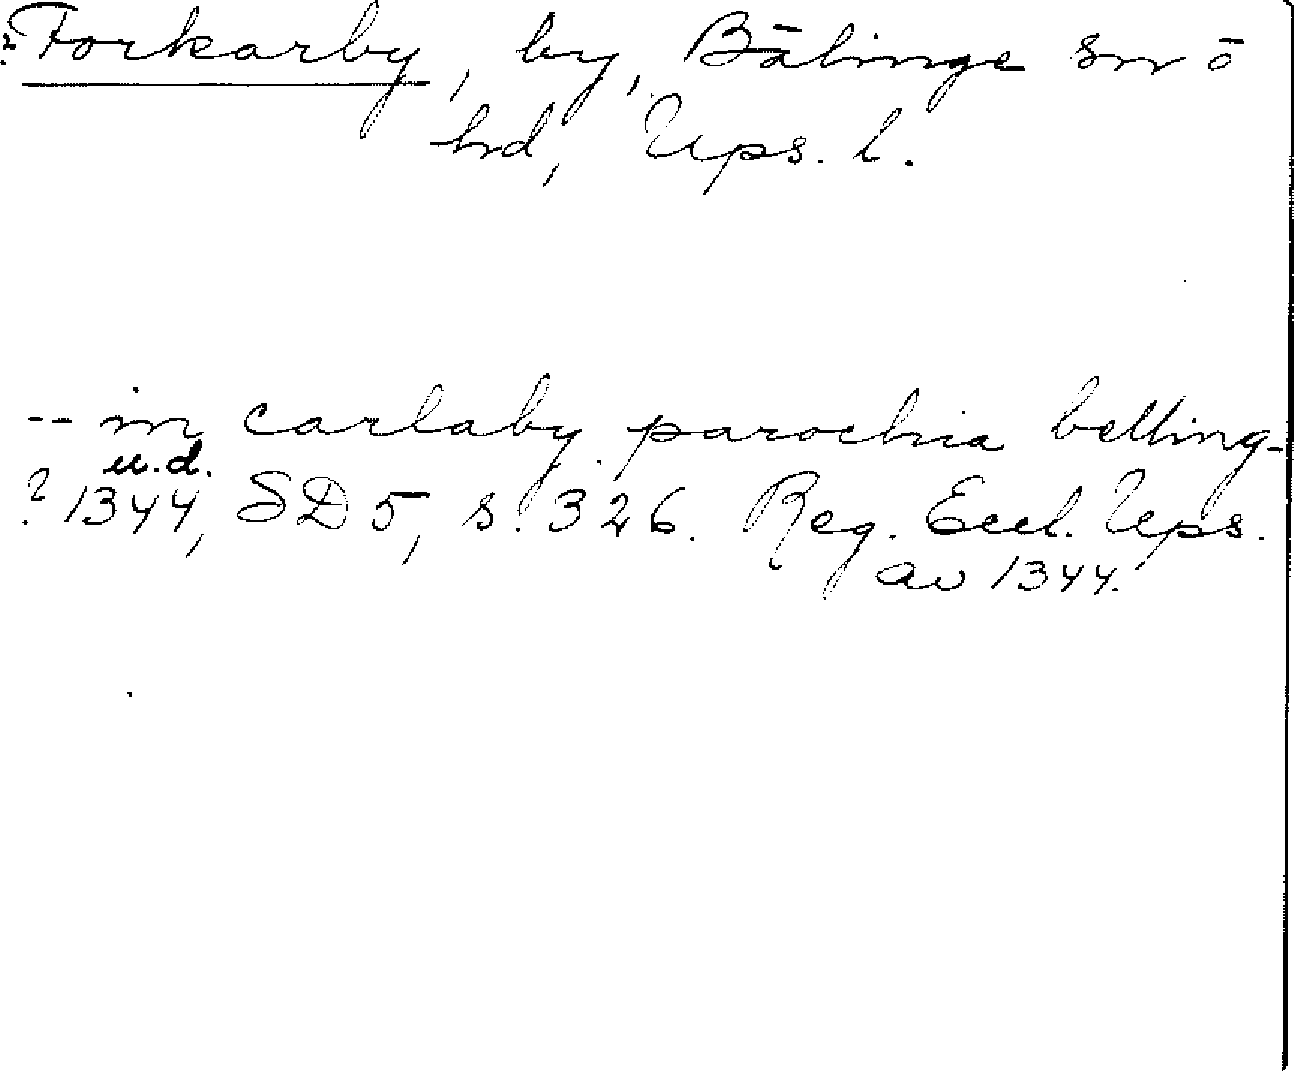 ? Forkarby, by, Bälinge sn o
hd, Ups. l.
-- in carlaby parochia belling-
u.d.
? 1344, SD 5, s. 326. Reg. Eccl. Ups.
av 1344.